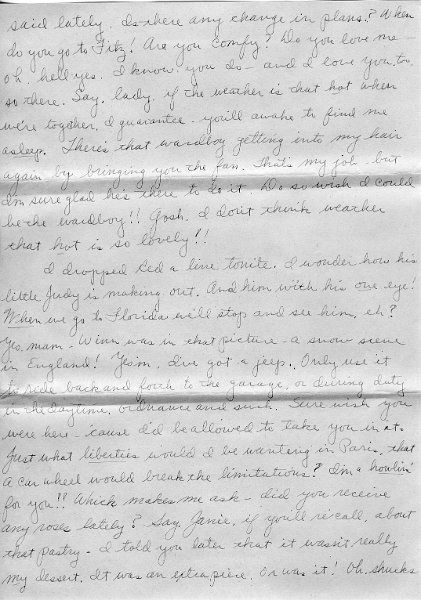 said lately. Is there any change in plans? When
do you go to Fitz! Are you comfy? Do you love me -
oh, hell yes. I know you do - and I love you, too,
so there. Say, lady, if the weather is that hot when
we're together, I guarantee - you'll awake to find me
asleep. There's that wardboy getting into my hair
again by bringing you the fan. That's my job - but
I'm sure glad he's there to do it. Do so wish I could
be the wardboy!! Gosh, I don't think weather
that hot is so lovely!!
I dropped Red a line tonite. I wonder how his
little Judy is making out. And him with his one eye!
When we go to Florida we'll stop and see him, eh?
Yes, mam - Winn was in that picture - a snow scene
in England! Yes'm, I've got a jeep. Only use it
to ride back and forth to the garage, or during duty
in the daytime, ordnance and such. Sure wish you
were here - 'cause I'd be allowed to take you in it.
Just what liberties would I be wanting in Paris, that
a car wheel would break the limitations? I'm a howlin'
for you!! Which makes me ask - did you receive
any roses lately? Say, Janie, if you'll re'call, about
that pastry - I told you later that it wasn't really
my dessert. It was an extra piece. Or was it! Oh, shucks